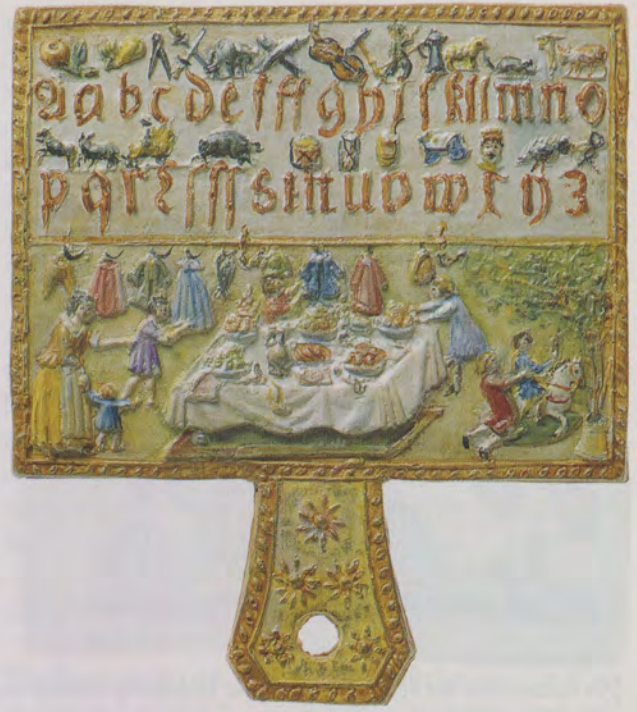 A a b c d e f ff g h i j k l l m n o
p q r ꝛ ſ ſſ s t tt u v w x y z